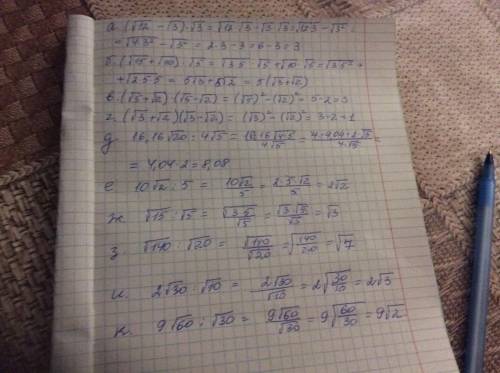 а. (√12 - √3)·√3 = √12·√3 - √3·√3 = √12·3 - √3² =
= √4·3² - √3² = 2·3 - 3 = 6 - 3 = 3
б. (√15 + √10):√5 = √3·5·√5 + √10·√5 = √3·5² +
+ √2·5·5 = 5√3 + 5√2 = 5(√3 + √2)
в. (√5 + √2)·(√5 - √2) = (√5)² - (√2)² = 5 - 2 = 3
г. (√3 + √2)(√3 - √2) = (√3)² - (√2)² = 3 - 2 = 1
д. 16,16√20 : 4√5 = 16,16√4·5 / 4√5 = 4·4,04·2√5 / 4·√5 =
= 4,04·2 = 8,08
е. 10√2 : 5 = 10√2/5 = 2·5·√2/5 = 2√2
ж. √15 : √5 = √3·5/√5 = √3·√5/√5 = √3
з. √140 : √20 = √140/√20 = √140/20 = √7
и. 2√30 : √10 = 2√30/√10 = 2√30/10 = 2√3
к. 9√60 : √30 = 9√60/√30 = 9√60/30 = 9√2